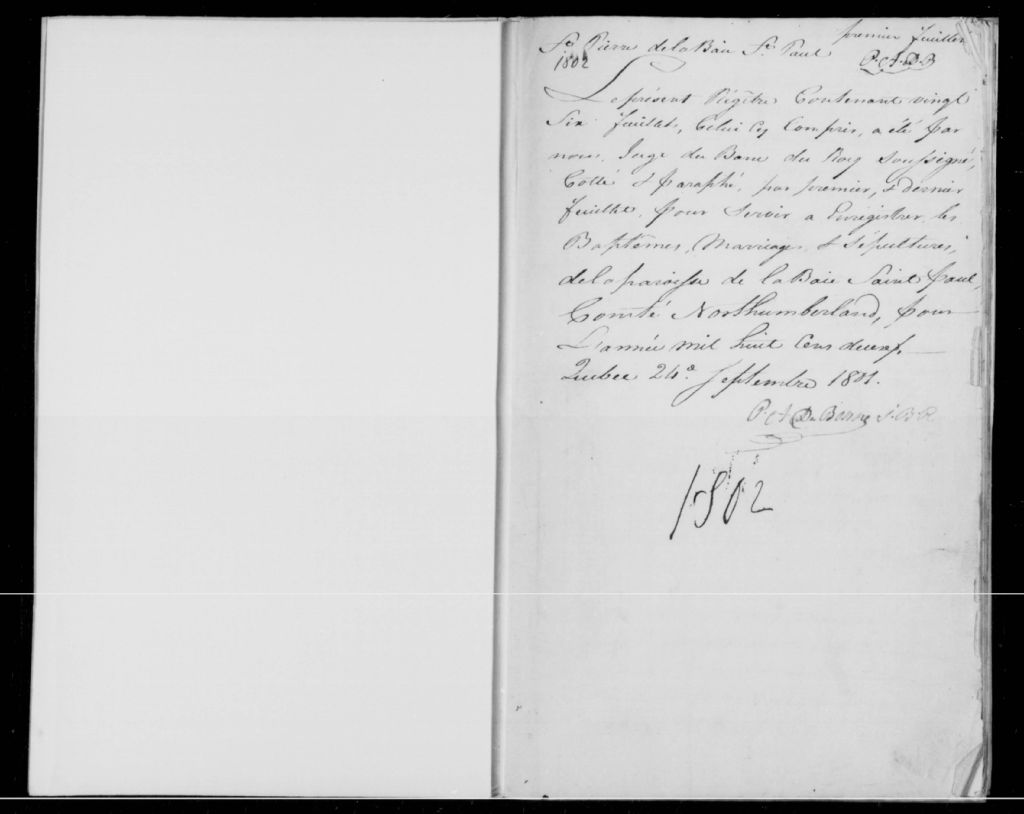 premier feuillet
St. Pierre de la Baie St. Paul
P. A. D. B
1802
Le présent Régitre Contenant vingt
Six feuillets, Celui Cy Compris, a été par
nous, Juge du Banc du Roy Soussigné,
Cotté & paraphé, par premier, & dernier
feuillet, pour Servir a Enregistrer les
Baptêmes, Mariages, & Sépultures,
de la paroisse de la Baie Saint paul,
Comté Northumberland, pour
L'année mil huit Cens deux,
Quebec 24e. Septembre 1801.
P. A De Bonne J. B. R.
1802